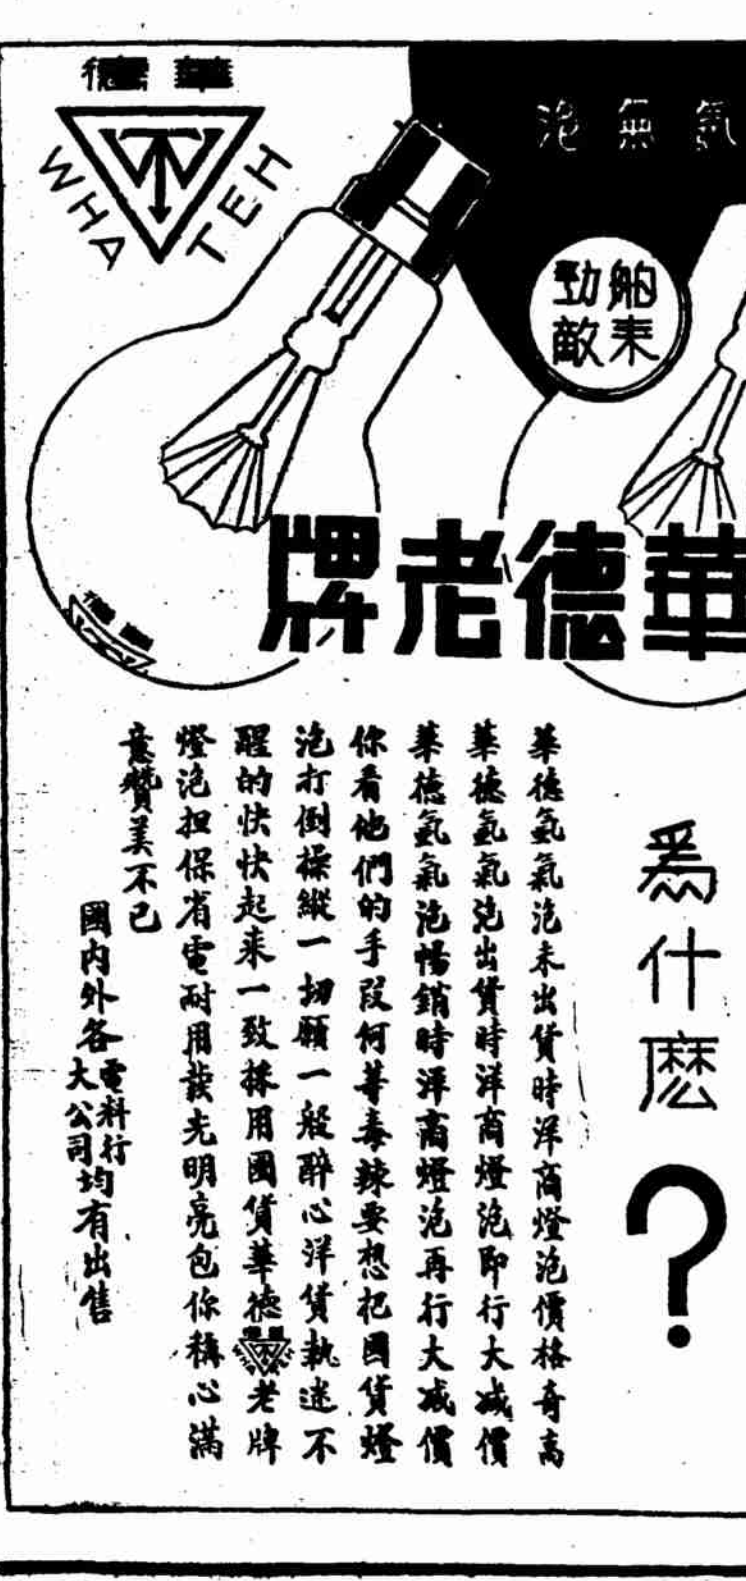 華德
WHA TEH
氣無泡
舶来
勁敵
華德老牌
華德
為什麽?
華德氬氣泡未出貨時洋商燈泡價格奇高
華德氬氣泡出貨時洋商燈泡即行大减價
華德氬氣泡暢銷時洋商燈泡再行大减價
你看他們的手段何等毒辣要想把國貨燈
泡打倒操縱一切願一般醉心洋貨執迷不
醒的快快起来一致採用國貨華德老牌
燈泡担保省電耐用發光明亮包你稱心滿
意贊美不已
國内外各電料行大公司均有出售